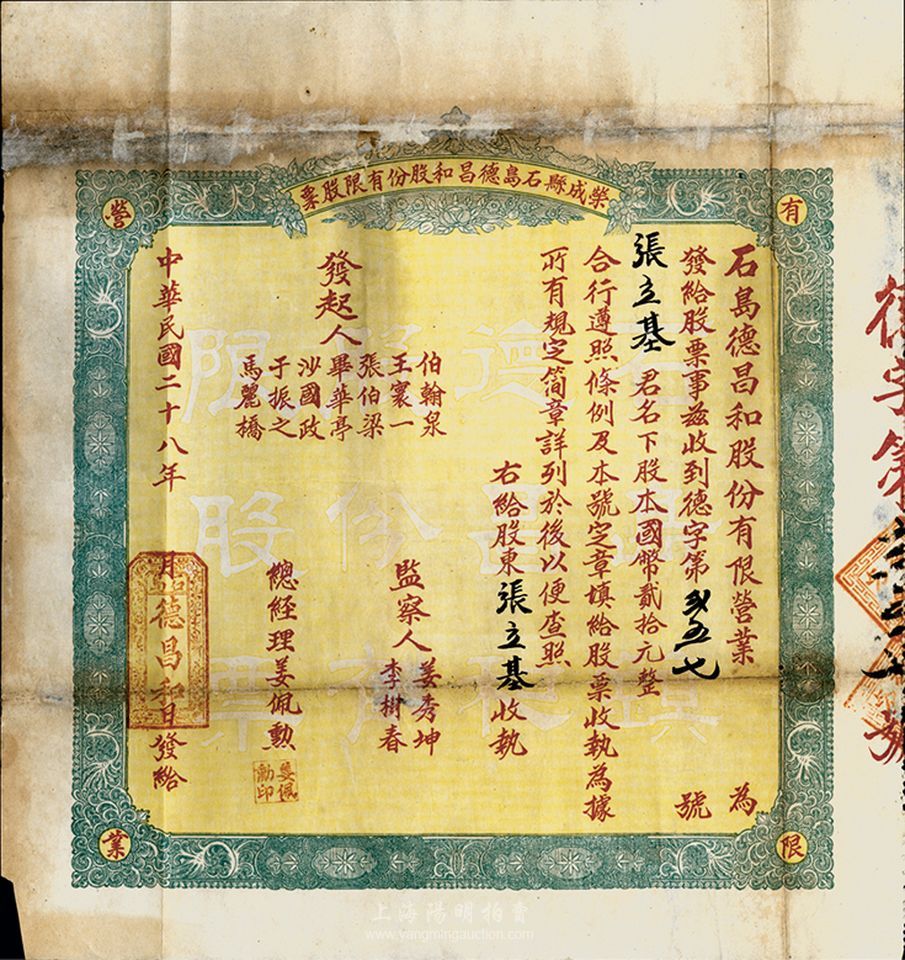 榮成縣石島德昌和股份有限股票
有
限
營
業
石島德昌和股份有限營業 為
發給股票事茲收到德字第 五七 號
張立基 君名下股本國幣貳拾元整
合行遵照條例及本號定章填給股票收執為據
所有規定簡章詳列於後以便查照
右給股東張立基收執
發起人
伯翰泉
王寰一
張伯梁
畢華亭
沙國政
于振之
馬麗橋
監察人
姜秀坤
李樹春
總經理姜佩勲
姜佩勳印
中華民國二十八年 月 日發給
石島德昌和
德字第
號
上海陽明拍賣
www.yangmingauction.com